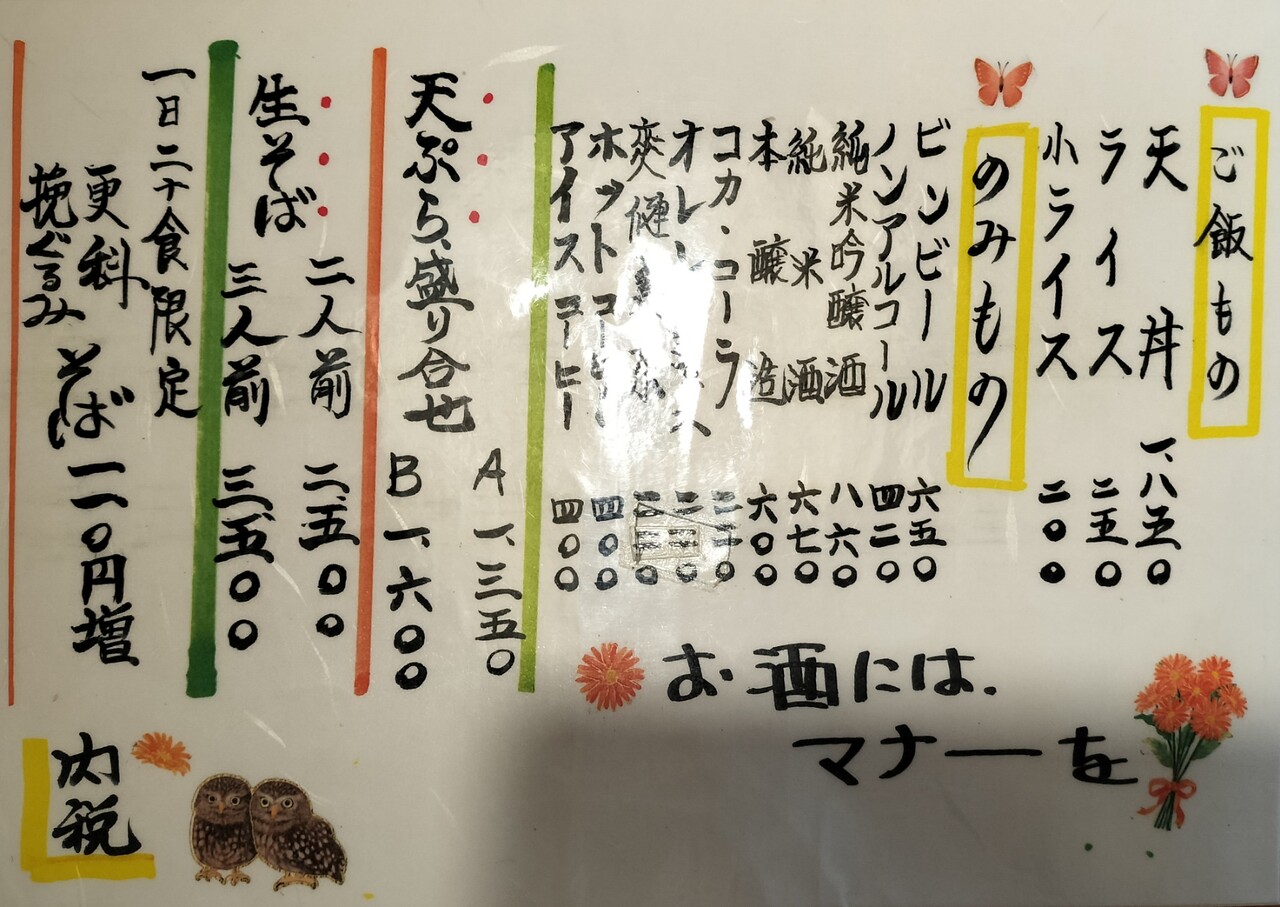 ご飯もの
天丼 一、八五〇
ライス 二五〇
小ライス 二〇〇
のみもの
ビンビール 六五〇
ノンアルコール 四二〇
純米吟醸酒 八六〇
純米酒 六七〇
本醸造 六〇〇
コカ・コーラ
オレンジジュース
爽健美茶
ホットコーヒー 四〇〇
アイスコーヒー 四〇〇
天ぷら盛り合せ A 一、三五〇
B 一、六〇〇
生そば 二人前 二、五〇〇
三人前 三、五〇〇
一日二十食限定
更科
挽ぐるみ
そば 一一〇円増
お酒には、
マナーを
内税